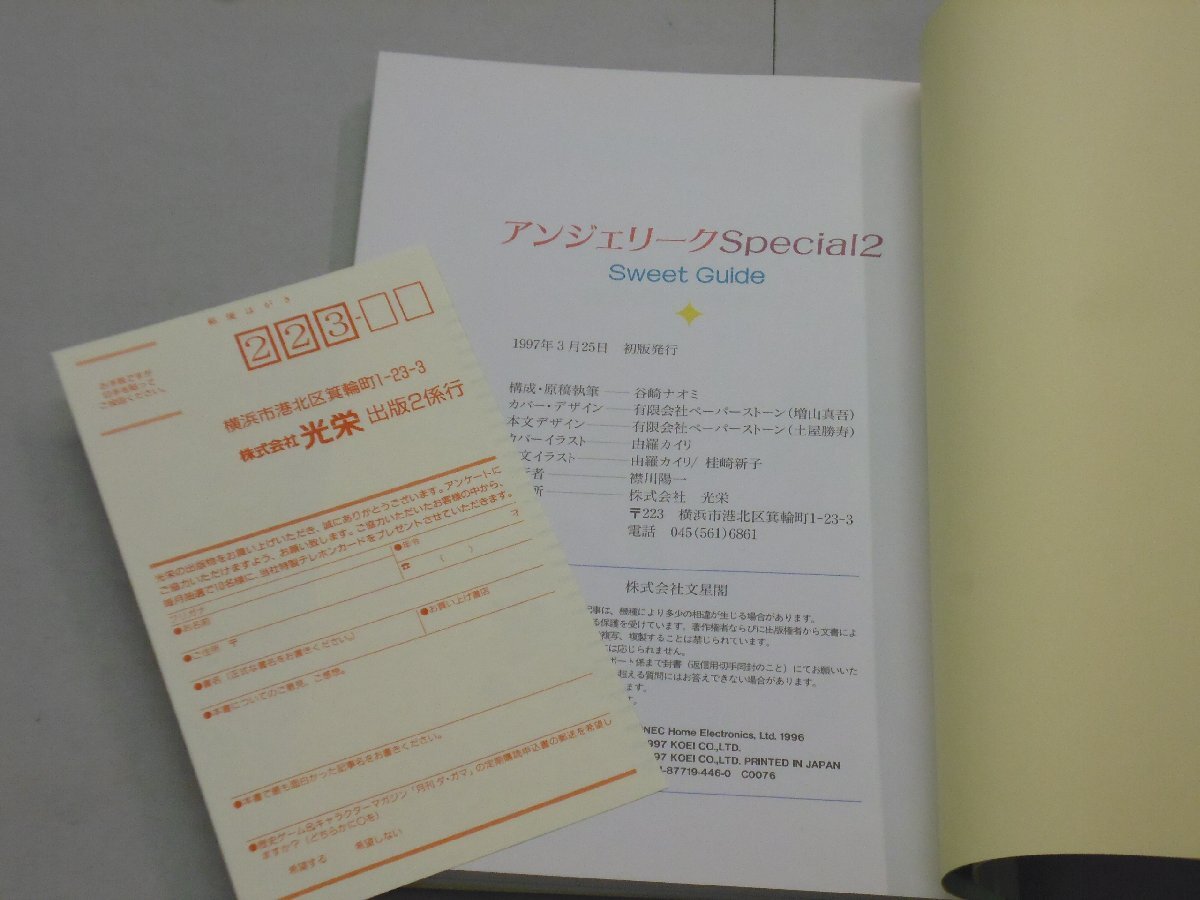 アンジェリークSpecial2
Sweet Guide
1997年3月25日　初版発行
構成・原稿執筆――谷崎ナオミ
カバー・デザイン――有限会社ペーパーストーン(増山真吾)
本文デザイン――有限会社ペーパーストーン(土屋勝寿)
カバーイラスト――由羅カイリ
文イラスト――由羅カイリ/桂崎新子
者――襟川陽一
所――株式会社　光栄
〒223　横浜市港北区箕輪町1-23-3
電話　045(561)6861
株式会社文星閣
記事は、機種により多少の相違が生じる場合があります。
る保護を受けています。著作権者ならびに出版権者から文書によ
複写、複製することは禁じられています。
には応じられません。
ポート係まで封書（返信用切手同封のこと）にてお願いいた
超える質問にはお答えできない場合があります。
ます。
す。
NEC Home Electronics, Ltd. 1996
997 KOEI CO.,LTD.
97 KOEI CO.,LTD. PRINTED IN JAPAN
-87719-446-0　C0076
郵便はがき
223-
お手数ですが
切手を貼って
ご投函ください。
横浜市港北区箕輪町1-23-3
株式会社 光栄 出版2係行
光栄の出版物をお買い上げいただき、誠にありがとうございます。アンケートに
ご協力いただけますよう、お願い致します。ご協力いただいたお客様の中から、
毎月抽選で10名様に、当社特製テレホンカードをプレゼントさせていただきます。
フリガナ
●お名前
●年令
才
☎ (　　)
●ご住所　〒
●お買い上げ書店
●書名（正式な書名をお書きください。）
●本書についてのご意見、ご感想。
●本書で最も面白かった記事名をお書きください。
●歴史ゲーム&キャラクターマガジン「月刊ダ・ガマ」の定期購読申込書の郵送を希望し
ますか？（どちらかに○を）
希望する　　希望しない